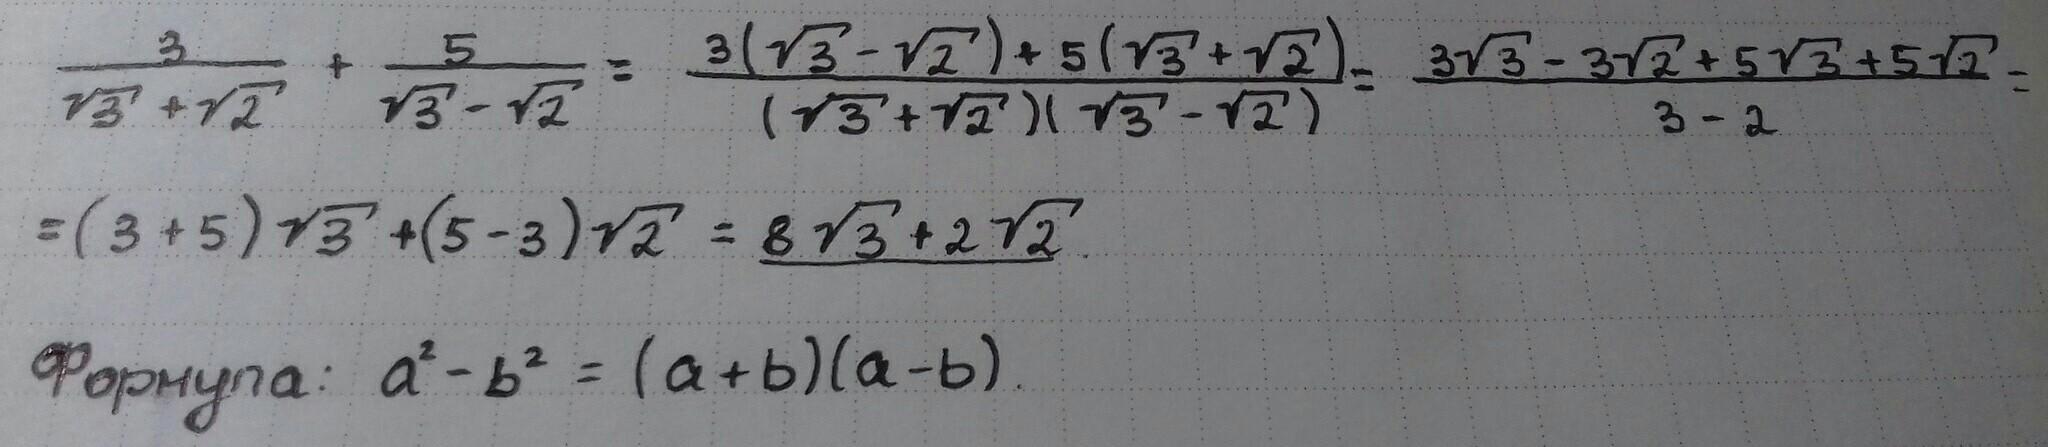 3/(√3 + √2) + 5/(√3 - √2) = (3(√3 - √2) + 5(√3 + √2))/((√3 + √2)(√3 - √2)) = (3√3 - 3√2 + 5√3 + 5√2)/(3 - 2) =
= (3 + 5)√3 + (5 - 3)√2 = 8√3 + 2√2.
Формула: a² - b² = (a + b)(a - b).